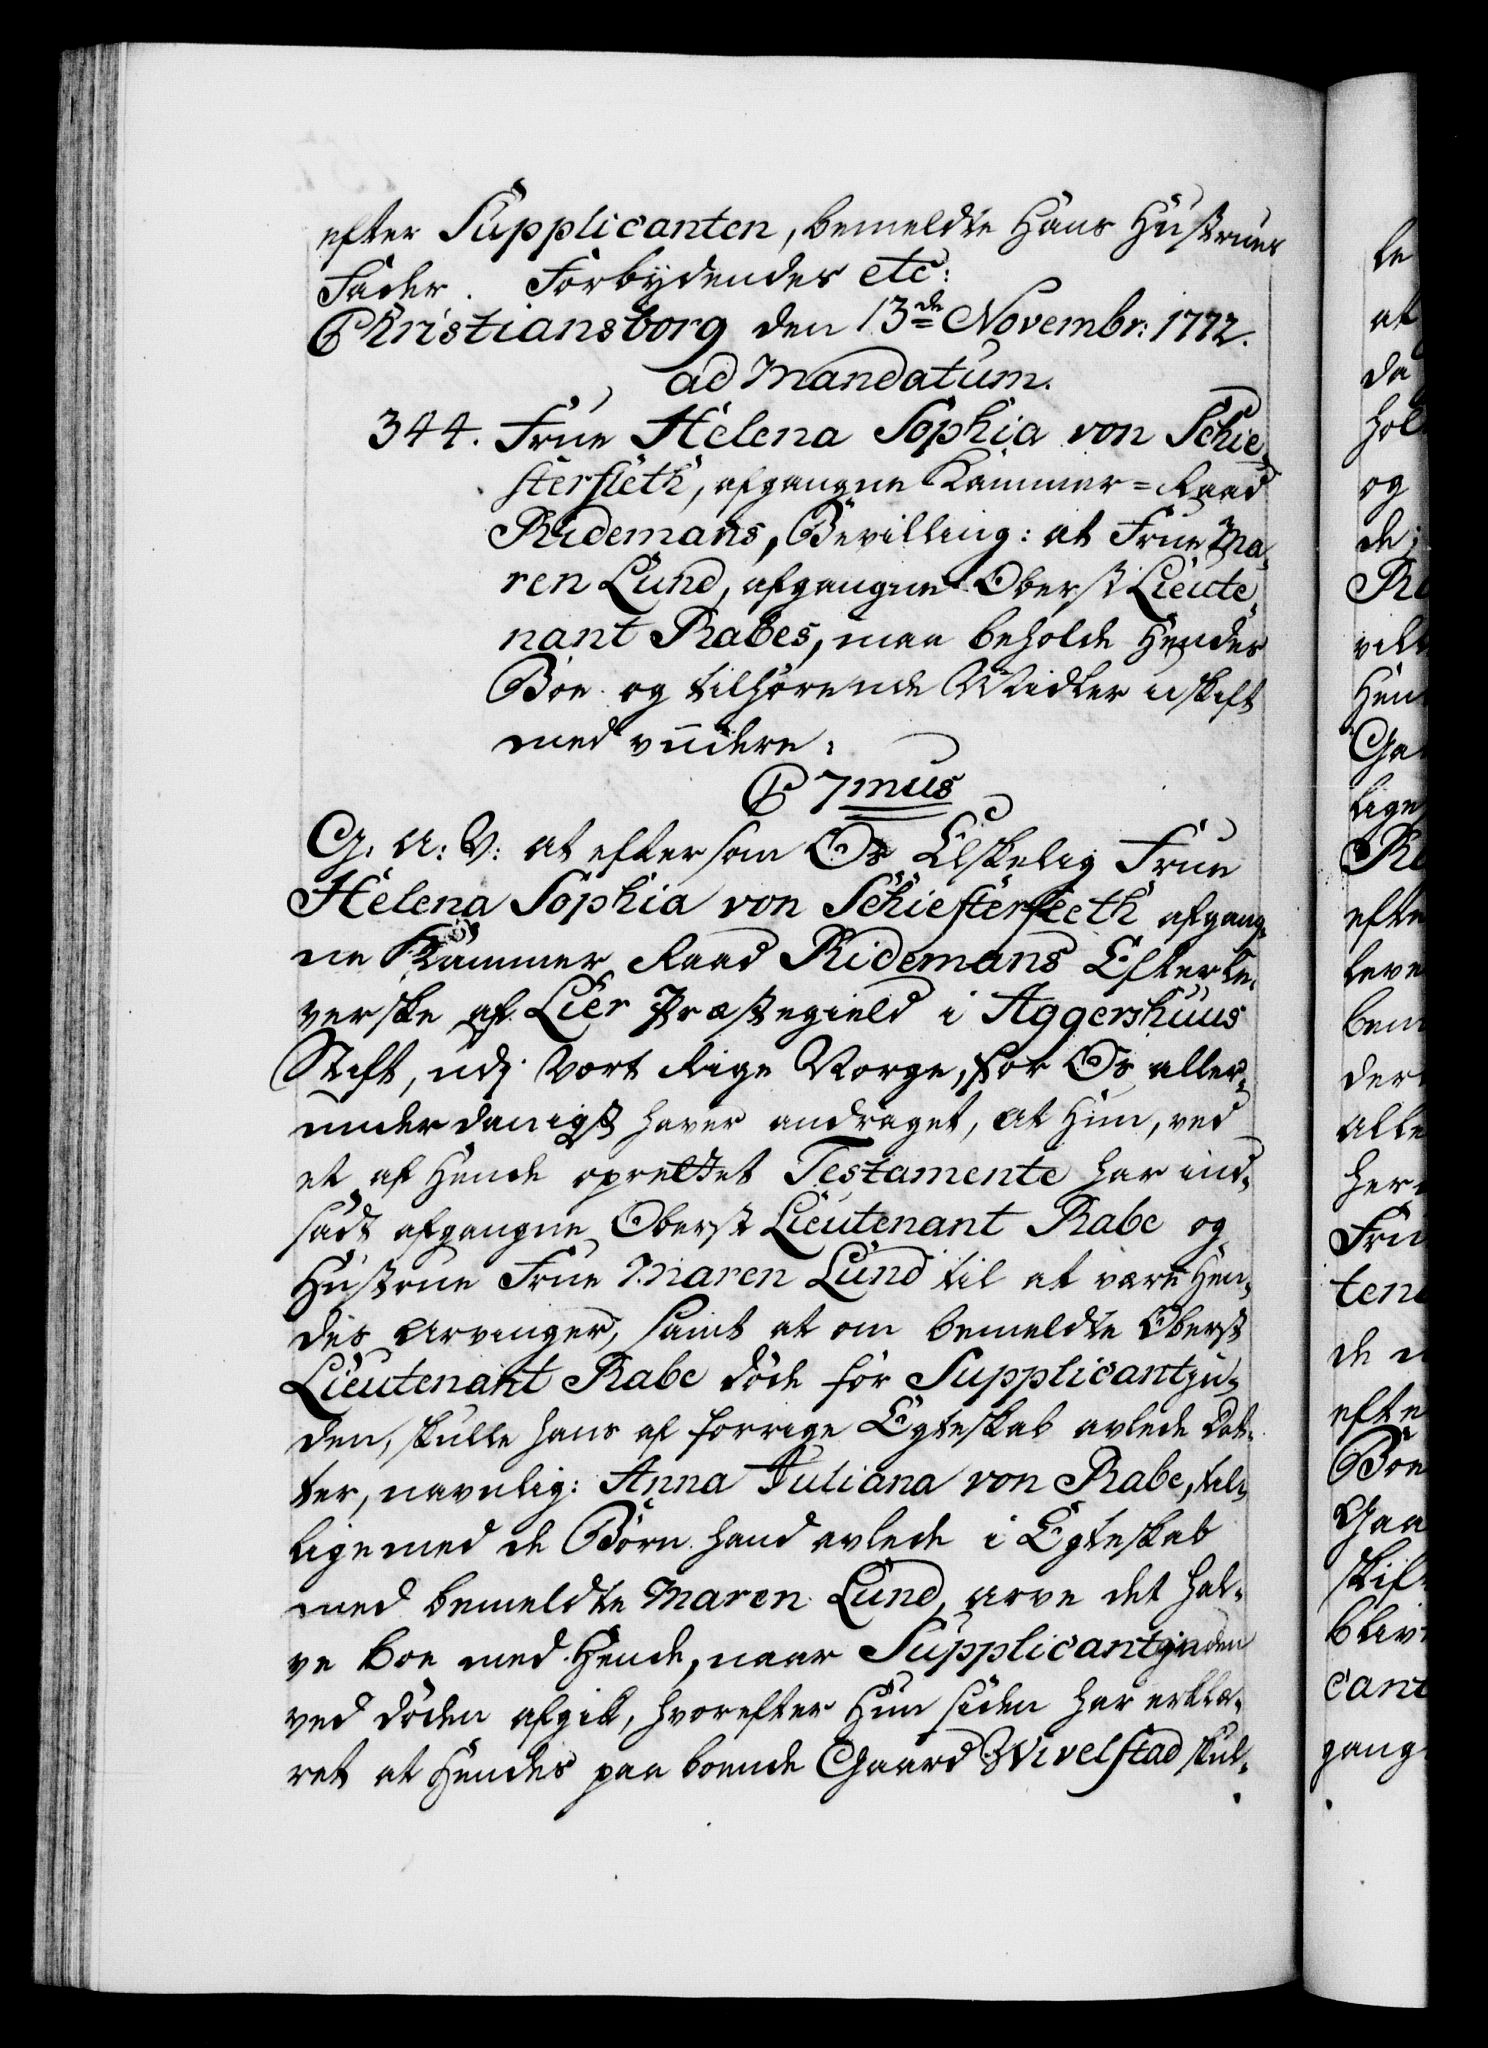 efter Supplicanten, bemeldte Hans Hustrues
Fader. Forbydendes etc:
Christiansborg den 13de Novembr: 1772.
ad Mandatum.
344. Frue Helena Sophia von Schie-
sterfleth, afgangne Kammer-Raad
Ridemans, Bevilling: at Frue Ma-
ren Lund, afgangne Oberst Lieute-
nant Rabes, maa beholde Hendes
Boe og tilhørende Midler uskift
med videre:
C 7mus
G. A: V: at eftersom Os Elskelig Frue
Helena Sophia von Schiesterfleeth afgang-
ne Kammer Raad Ridemans Efterle-
verske af Lier Præstegield i Aggershuus
Stift, udj Vort Rige Norge, for Os aller-
underdanigst haver andraget, at Hun, ved
et af Hende oprettet Testamente har ind-
sadt afgangne Oberst Lieutenant Rabe og
Hustrue Frue Maren Lund til at være Hen-
des Arvinger, samt at om bemeldte Oberst
Lieutenant Rabe døde før Supplicantin-
den, skulle hans af forrige Egteskab avlede Dat-
ter, navnlig: Anna Juliana von Rabe, til-
ligemed de Børn hand avlede i Egteskab
med bemeldte Maren Lund, arve det hal-
ve Boe med Hende, naar Supplicantinden
ved Døden afgik, hvorefter Hun siden har erklæ-
ret at Hendes paa boende Gaard Wivelstad skul-
le
at
da
hol
og
de;
vill
Hen
Ga
lige
efte
leve
bem
der
alle
her
Fru
tena
de
efte
Boe
Gaa
skif
bliv
cant
gang